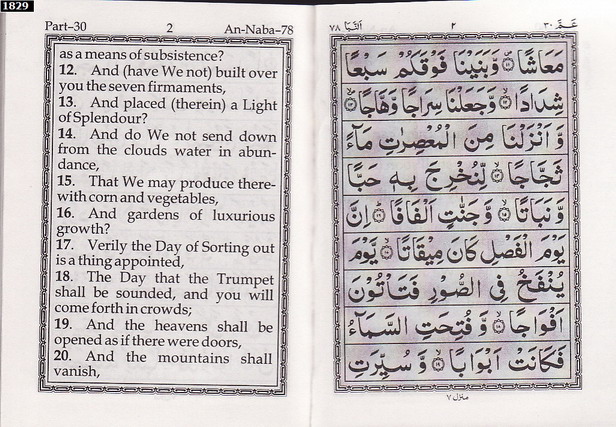 1829
Part-30 2 An-Naba-78
as a means of subsistence?
12. And (have We not) built over
you the seven firmaments,
13. And placed (therein) a Light
of Splendour?
14. And do We not send down
from the clouds water in abun-
dance,
15. That We may produce there-
with corn and vegetables,
16. And gardens of luxurious
growth?
17. Verily the Day of Sorting out
is a thing appointed,
18. The Day that the Trumpet
shall be sounded, and you will
come forth in crowds;
19. And the heavens shall be
opened as if there were doors,
20. And the mountains shall
vanish,
عَمَّ ٣٠ ٢ اَلنَّبَا ٧٨
مَعَاشًا ۝١١ وَّبَنَيْنَا فَوْقَكُمْ سَبْعًا
شِدَادًا ۝١٢ وَّجَعَلْنَا سِرَاجًا وَّهَّاجًا ۝١٣
وَّ اَنْزَلْنَا مِنَ الْمُعْصِرٰتِ مَآءً
ثَجَّاجًا ۝١٤ لِّنُخْرِجَ بِهٖ حَبًّا
وَّ نَبَاتًا ۝١٥ وَّ جَنّٰتٍ اَلْفَافًا ۝١٦ اِنَّ
يَوْمَ الْفَصْلِ كَانَ مِيْقَاتًا ۝١٧ يَّوْمَ
يُنْفَخُ فِى الصُّوْرِ فَتَاْتُوْنَ
اَفْوَاجًا ۝١٨ وَّ فُتِحَتِ السَّمَآءُ
فَكَانَتْ اَبْوَابًا ۝١٩ وَّ سُيِّرَتِ
منزل ٧